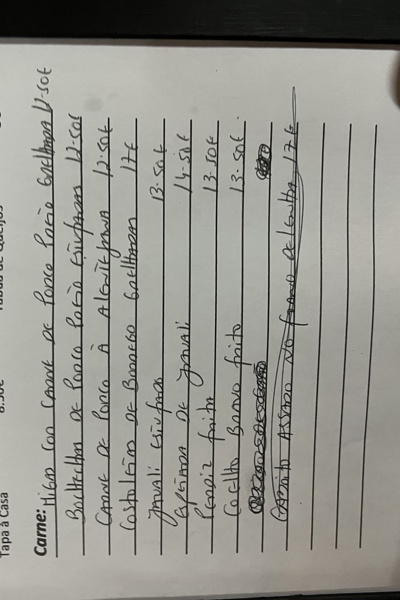 Tapa à Casa 8.50€ Tábua de Queijos
Carne: Migas com Carne de Porco Preto Grelhada 12.50€
Bochechas de Porco Preto Estufadas 12.50€
Carne de Porco à Alentejana 12.50€
Costoletas de Borrego Grelhadas 17€
Javali Estufado 13.50€
Espetada de Javali 14.50€
Perdiz frita 13.50€
Coelho Bravo frito 13.50€
Cabrito Assado no forno de lenha 17€